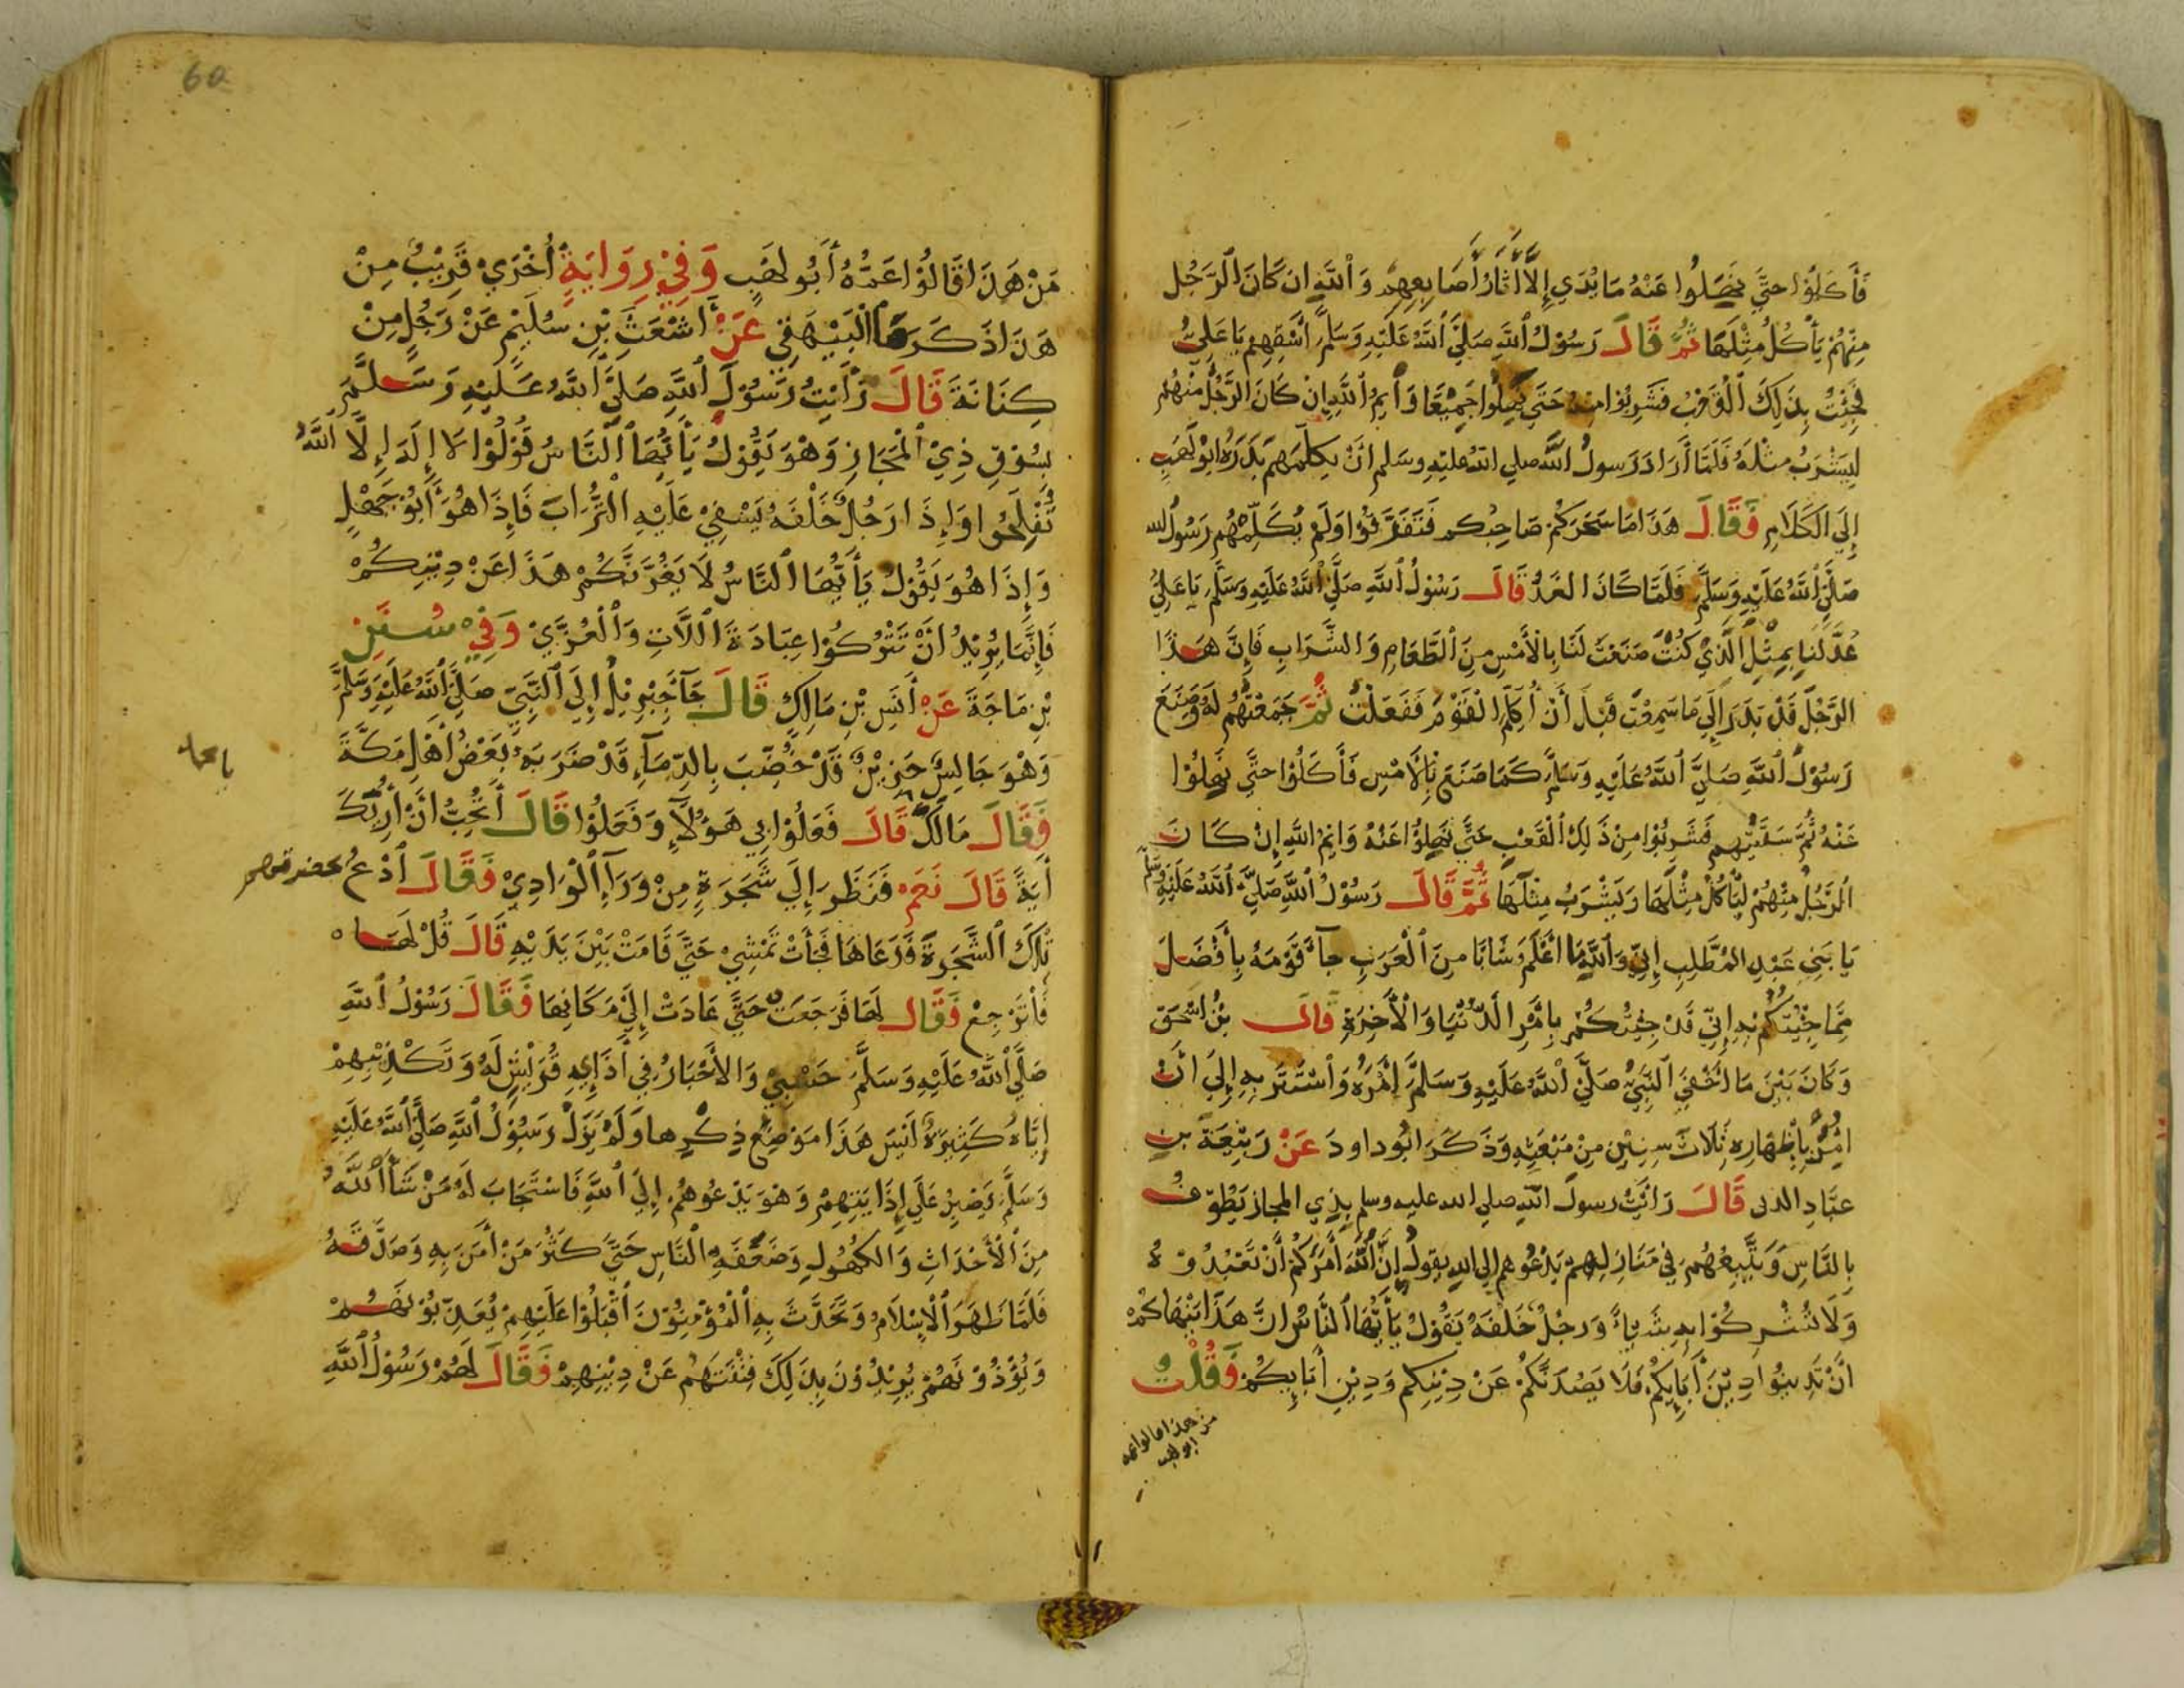 فَأَكَلُوْا حتَّي نَهَلُوا عَنْهُ مَا يُدَي إِلَّا أَثَارُ أَصَابِعِهِمْ وَٱللَّهِ ان كَانَ ٱلرَّجُل
مِنْهُمْ يَأْكُلُ مِثْلَهَا ثُمَّ قَالَ رَسُوْلُ ٱللَّهِ صَلَّيَ ٱللَّهُ عَلَيْهِ وَسَلَّمَ ٱسْقِهِم يَا عَلِيُّ
فَجِئْتُ بِذَلِكَ ٱلْقَعْبِ فَشَرِبُوا مِنْهُ حَتَّي نَهِلُوا جَمِيْعًا وَأَيْمُ ٱللَّهِ إِنْ كَانَ الرَّجُلُ مِنْهُمْ
لِيَشْرَبُ مثْلَهُ فَلَمَّا أَرَادَ رَسولُ ٱللَّه صلي الله عليه وسلم انْ يكلِّمَهم بَدَرَهُ ابوْ لَهَبٍ
إِلَيَ الكَلَامِ فَقَالَ هَذَا مَا سَحَرَكُمْ صَاحِبُكم فَتَفَرَّقُوْا وَلَمْ يُكَلِّمْهُم رَسُولُ الله
صَلَّيَ ٱللَّهُ عَلَيْهِ وَسَلَّمَ فَلَمَّا كَانَ الغَدُ قَالَ رَسُوْلُ ٱللَّهِ صَلَّيَ ٱللَّهُ عَلَيْهِ وَسَلَّمَ يَا عَلِيُّ
عُدَّ لَنَا بِمِثْلِ الَّذِيْ كُنْتَ صَنَعْتَ لَنَا بِالأَمْسِ مِنَ ٱلطَّعَامِ وَالشَّرَابِ فَإِنَّ هَذَا
الرَّجُلَ قَدْ بَدَرَ إِلَي مَا سَمِعْتَ قَبْلَ أَنْ أُكَلِّمَ الْقَوْمَ فَفَعَلْتُ ثُمَّ جَمَعْتُهُمْ لَهُ وَصَنَعَ
رَسُوْلُ ٱللَّهِ صَلَّيَ ٱللَّهُ عَلَيْهِ وَسَلَّمَ كَمَا صَنَعَ بِالأَمْسِ فَأَكَلُوْا حتَّي نَهِلُوْا
عَنْهُ ثُمَّ سَقَيْتُهم فَشَرِبُوا مِنْ ذَلِكَ ٱلْقَعْبِ حَتَّي نَهِلُوْا عَنْهُ وَايْمُ اللَّهِ إِنْ كَانَ
ٱلرَّجُلُ مِنْهُمْ لِيَأْكُلُ مِثْلَهَا وَيَشْرَبُ مِثْلَهَا ثُمَّ قَالَ رَسُوْلُ ٱللَّهِ صَلَّيَ ٱللَّهُ عَلَيْهِ وسَلَّمَ
يَا بَنِي عَبْدِ المُطَّلِبِ إِنِّي وَٱللَّهِ مَا أَعْلَمُ شَابًّا مِنَ ٱلْعَرَبِ جآءَ قَوْمَهُ بِأَفْضَلَ
مِمَّا جِئْتُكُمْ بِهِ إِنِّي قَدْ جِئْتُكُمْ بِامْرِ الدُّنْيَا وَالْأَخِرَةِ قَالَ بْنُ اسْحَقَ
وَكَانَ بَيْنَ مَا أَخْفَيَ ٱلنَّبِيُّ صَلَّيَ ٱللَّهُ عَلَيْهِ وَسَلَّمَ أَمْرَهُ وَٱسْتَتَرَ بِهِ إِلَيَ انْ
امُِرَ بِإِظْهَارِهِ ثَلَاثَ سِنِيْنٍ مِنْ مَبْعَثِهِ وَذَكَرَ ابُو داودَ عَنْ رَبِيْعَةَ بنِ
عبَّادِ الدلى قَالَ رَأَيْتُ رسولَ اللَّهِ صلي الله عليه وسلم بِذِي المجاز يَطُوّفُ
بِالنَّاسِ وَيَتَّبِعُهُمْ فِي مَنَازِلِهِمْ يَدْعُوهم إلي الله يقولُ إِنَّ ٱللَّهَ أَمَرَكُمْ أَنْ تَعْبُدُوهُ
وَلَا تُشْرِكُوْا بِهِ شَيْئًا وَرجُلٌ خَلْفَهُ يَقُوْلُ يَأَيُّهَا ٱلنَّاسُ انَّ هَذَا يَنْهَاكُمْ
انْ تَدِينُوْا دِيْنَ أَبَائِكُمْ فَلَا يَصُدَّنَّكُمْ عَنْ دِيْنِكم وَدِيْنِ أَبَائِكُمْ فَقُلْتُ
من هذا قالوا عمه
ابو لهب
60
مَنْ هَذَا قَالُوْا عَمُّهُ أَبُو لهَبٍ وَفِيْ رِوَايَةٍ أُخْرَيْ قَرِيْبٌ مِنْ
هَذَا ذَكَرَهَا ٱلْبَيْهَقِي عَنْ أَشْعَثَ بْنِ سُلَيْمٍ عَنْ رَجُلٍ مِنْ
كِنَانَةَ قَالَ رَأَيْتُ رَسُوْلَ ٱللَّهِ صَلَّيَ ٱللَّهُ عَلَيْهِ وَسَلَّمَ
بِسُوْقِ ذِيْ ٱلْمَجَازِ وَهْوَ يَقُوْلُ يَأَيُّهَا ٱلنَّاسُ قُوْلُوْا لَا إِلَهَ إِلَّا اللَّهُ
تُفْلِحُوا وَإِذَا رَجُلٌ خَلْفَهُ يَسْفِيْ عَلَيْهِ ٱلتُّرَابَ فَإِذَا هُوَ أَبُوْ جَهْلٍ
وَإِذَا هُوَ يَقُوْلُ يَأَيُّهَا ٱلنَّاسُ لَا يَغُرَّنَّكُمْ هَذَا عَنْ دِيْنِكُمْ
فَإِنَّمَا يُرِيْدُ أَنْ تَتْرُكُوْا عِبَادَةَ ٱللَّاتِ وَٱلْعُزَّيْ وَفِيْ سُنَنِ
بْنِ مَاجَةَ عَنْ أَنَسِ بْنِ مَالِكٍ قَالَ جَآءَ جِبْرِيْلُ إِلَيَ ٱلنَّبِيِّ صَلَّيَ ٱللَّهُ عَلَيْهِ وَسَلَّمَ
وَهْوَ جَالِسٌ حَزِيْنٌ قَدْ خُضِّبَ بِالدِّمَآءِ قَدْ ضَرَبَهُ بَعْضُ أَهْلِ مَكَّةَ
فَقَالَ مَالَكَ قَالَ فَعَلُوْا بِي هَؤُلَآءِ وَفَعَلُوْا قَالَ أَتُحِبُّ انْ أُرِيَكَ
أَيَةً قَالَ نَعَمْ فَنَظَرَ إِلَي شَجَرَةٍ مِنْ وَرَآءِ ٱلْوَادِيْ فَقَالَ ٱدْعُ
تِلْكَ ٱلشَّجَرَةَ فَدَعَاهَا فَجَأَتْ تَمْشِيْ حَتَّيَ قَامَتْ بَيْنَ يَدَيْهِ قَالَ قُلْ لَهَا
فَلْتَرْجِعْ فَقَالَ لَهَا فَرَجَعَتْ حَتَّيَ عَادَتْ إِلَيْ مَكَانِهَا فَقَالَ رَسُوْلُ ٱللَّهِ
صَلَّيَ ٱللَّهُ عَلَيْهِ وَسَلَّمَ حَسْبِيْ وَالأَخْبَارُ فِي أَذَايِهِ قُرَيْشٍ لَهُ وَتَكْذِيْبِهِمْ
إِيَّاهُ كَثِيرَةٌ لَيْسَ هَذَا مَوْضِعَ ذِكْرِها وَلَمْ يَزَلْ رَسُوْلُ ٱللَّهِ صَلَّيَ ٱللَّهُ عَلَيْهِ
وَسَلَّمَ يَصْبِرُ عَلَي إِذَايَتِهِمْ وَهْوَ يَدْعُوهُمْ إِلَيَ ٱللَّهِ فَاسْتَجَابَ لَهُ مَنْ شَآءَ ٱللَّهُ
مِنَ ٱلْأَحْدَاثِ وَالكُهُولِ وَضَعَفَةِ ٱلنَّاسِ حَتَّيَ كَثُرَ مَنْ أَمَنَ بِهِ وَصَدَّقَهُ
فَلَمَّا ظَهَرَ ٱلْإِسْلَامُ وَتَحَدَّثَ بِهِ ٱلْمُؤْمِنُوْنَ أَقْبَلُوْا عَلَيْهِمْ يُعَذِّبُوْنَهُمْ
وَيُؤْذُوْنَهُمْ يُرِيْدُوْنَ بِذَلِكَ فِتْنَتَهُمْ عَنْ دِيْنِهِمْ فَقَالَ لَهُمْ رَسُوْلُ ٱللَّهِ